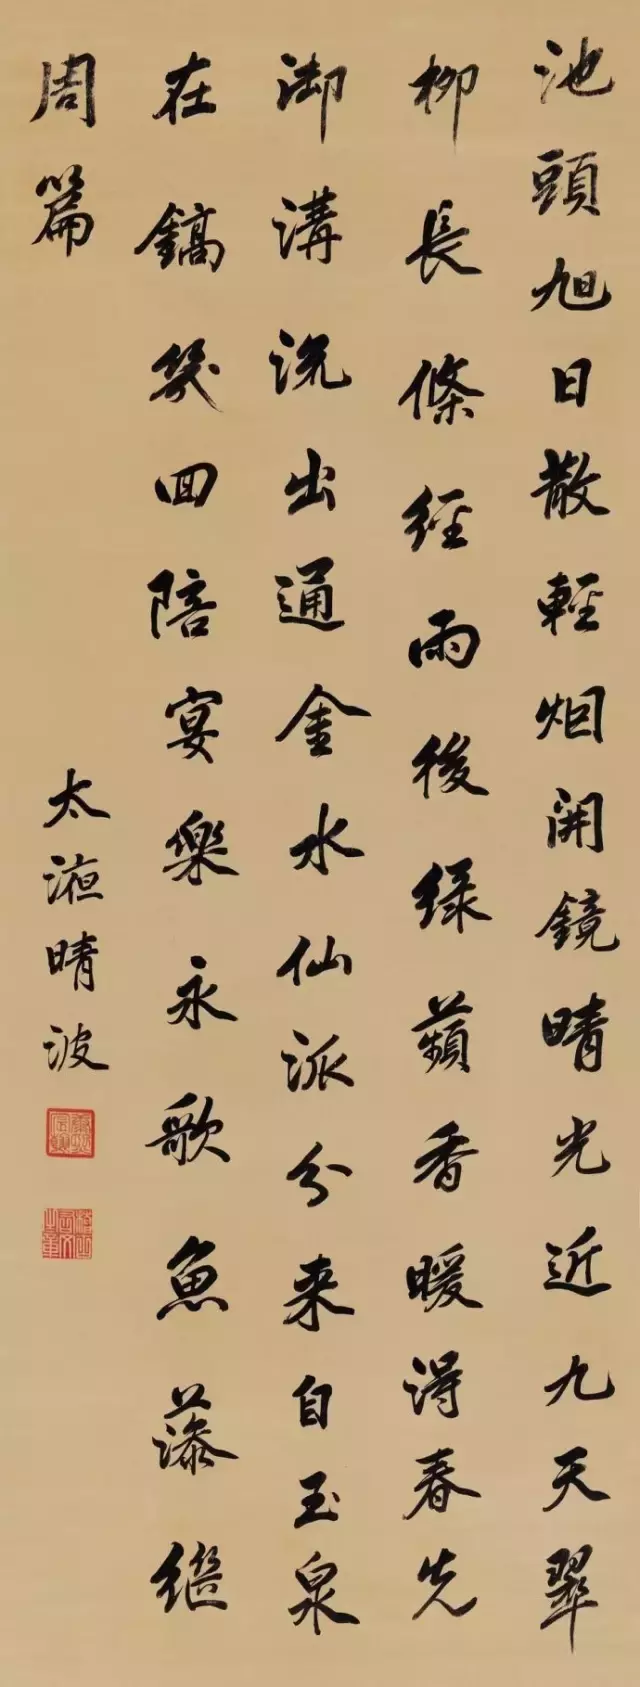 池頭旭日散輕烟開鏡晴光近九天翠
柳長條經雨後綠蘋香暖得春先
御溝流出通金水仙派分来自玉泉
在鎬幾回陪宴樂永歌魚藻継
周篇
太液晴波